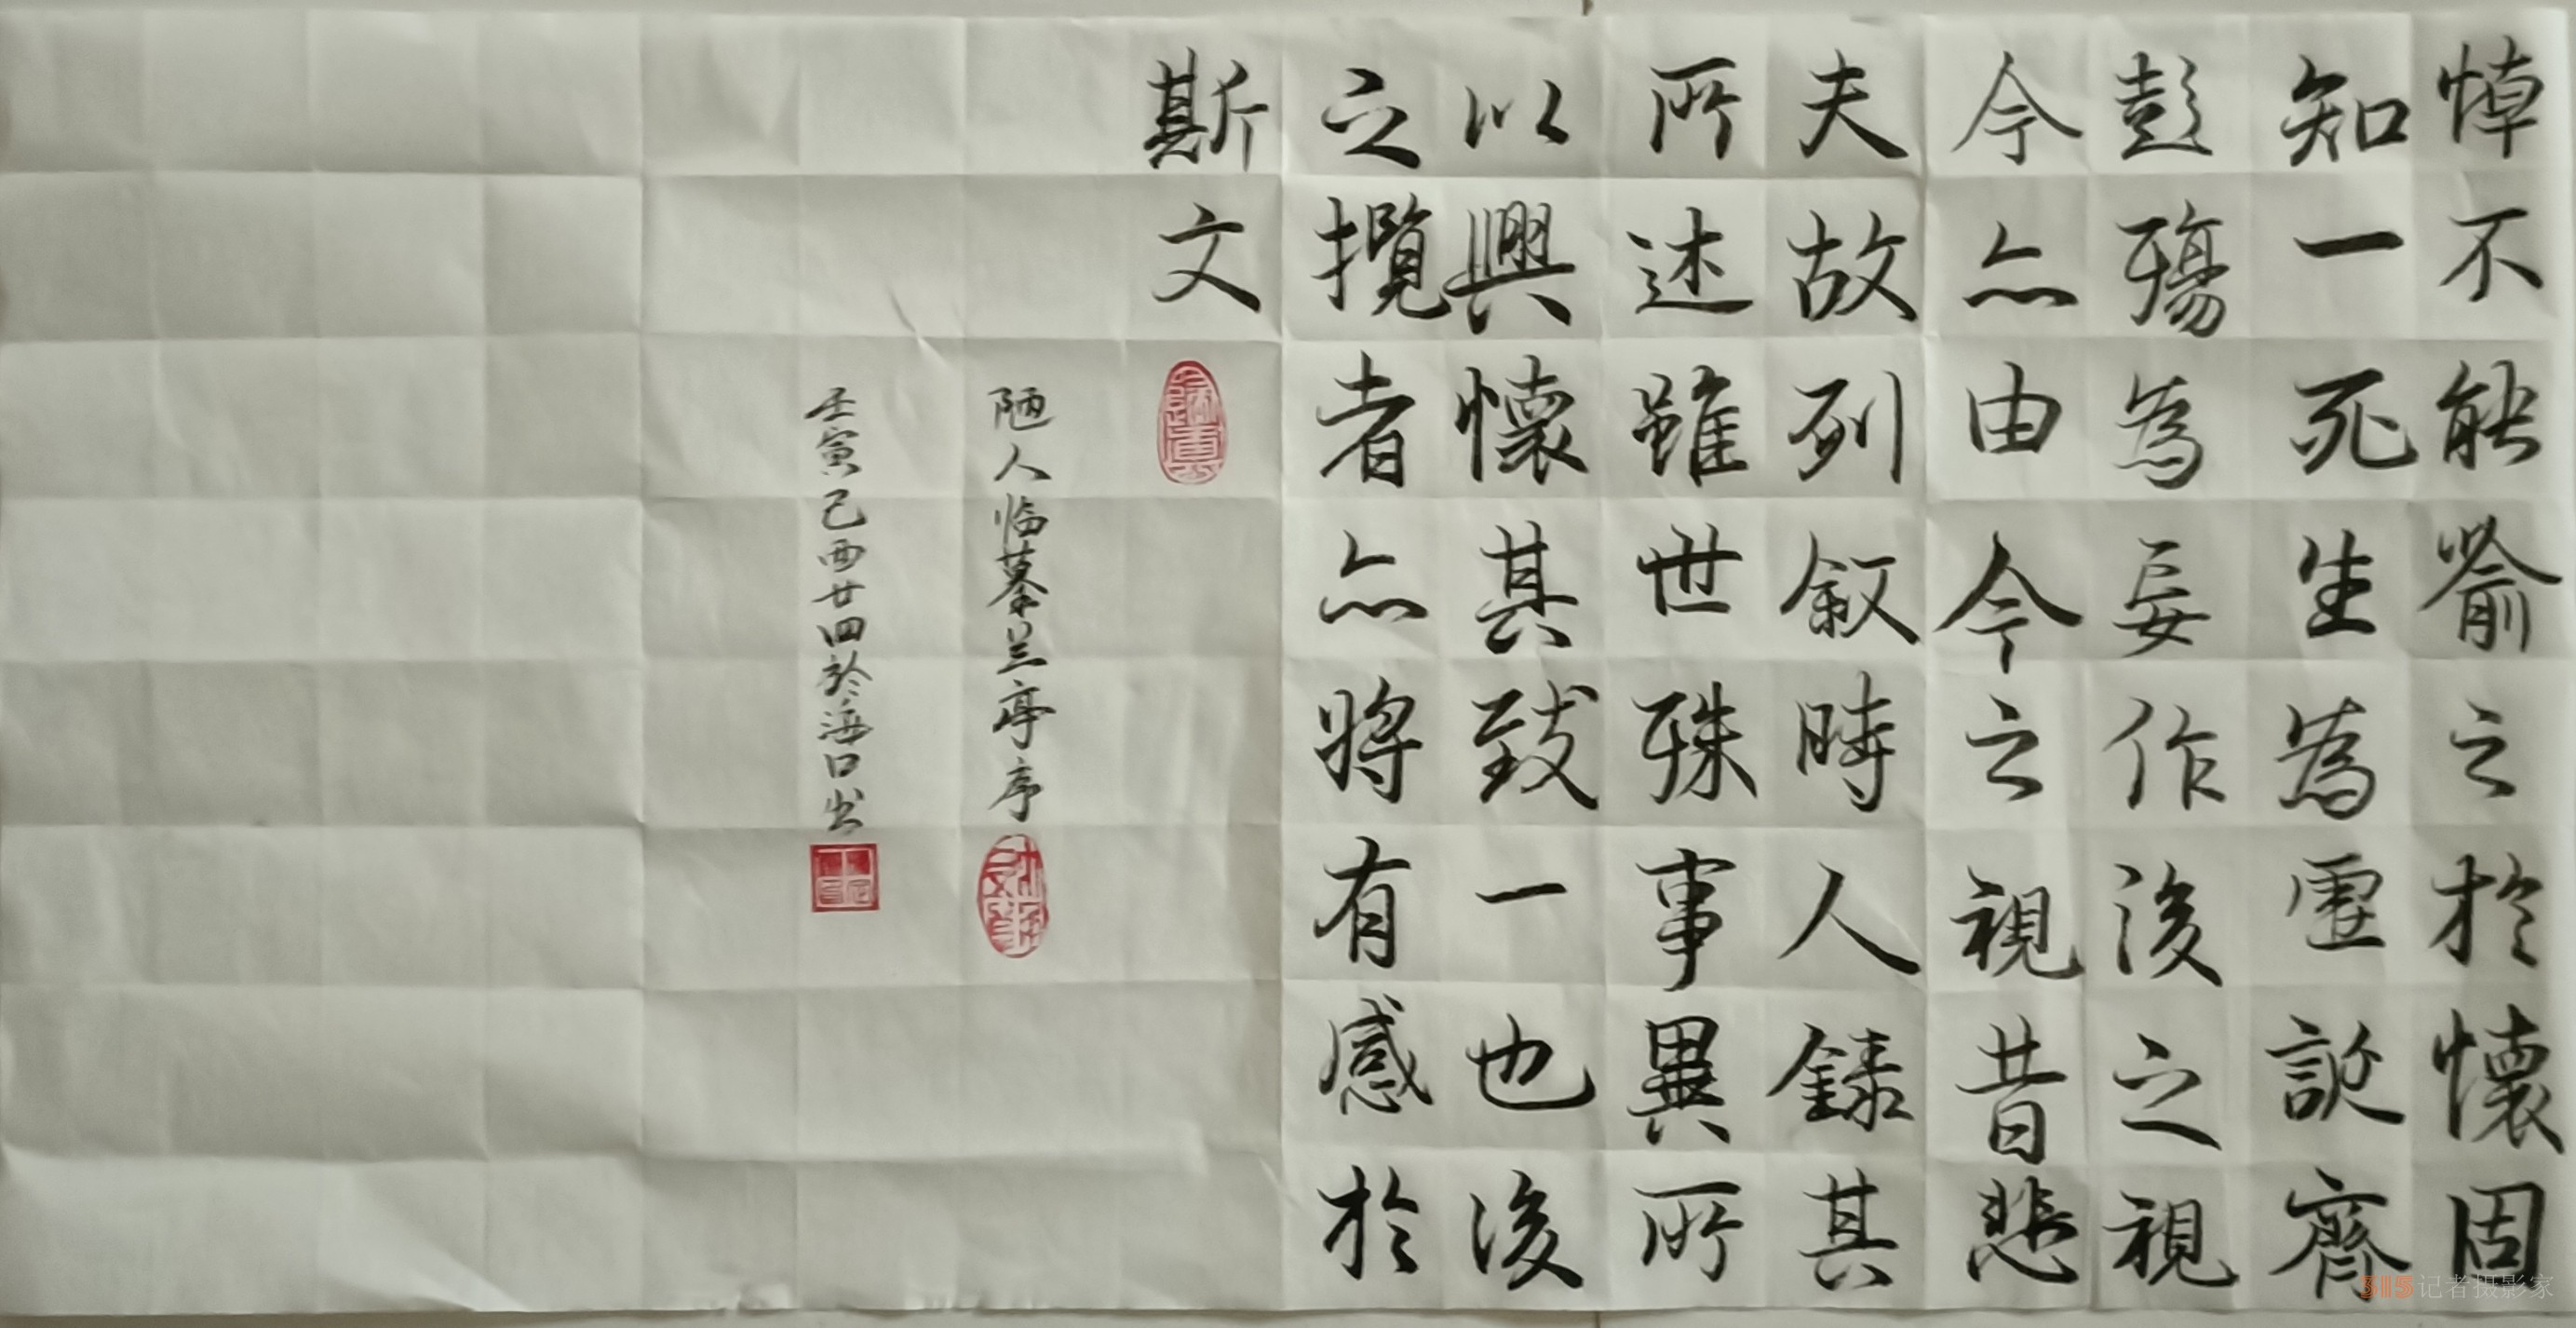 悼不能喻之於懷固
知一死生為虛誕齊
彭殤為妄作後之視
今亦由今之視昔悲
夫故列叙時人録其
所述雖世殊事異所
以興懷其致一也後
之攬者亦將有感於
斯文
陋人临摹兰亭序
壬寅己酉廿四於海口书
315记者摄影家